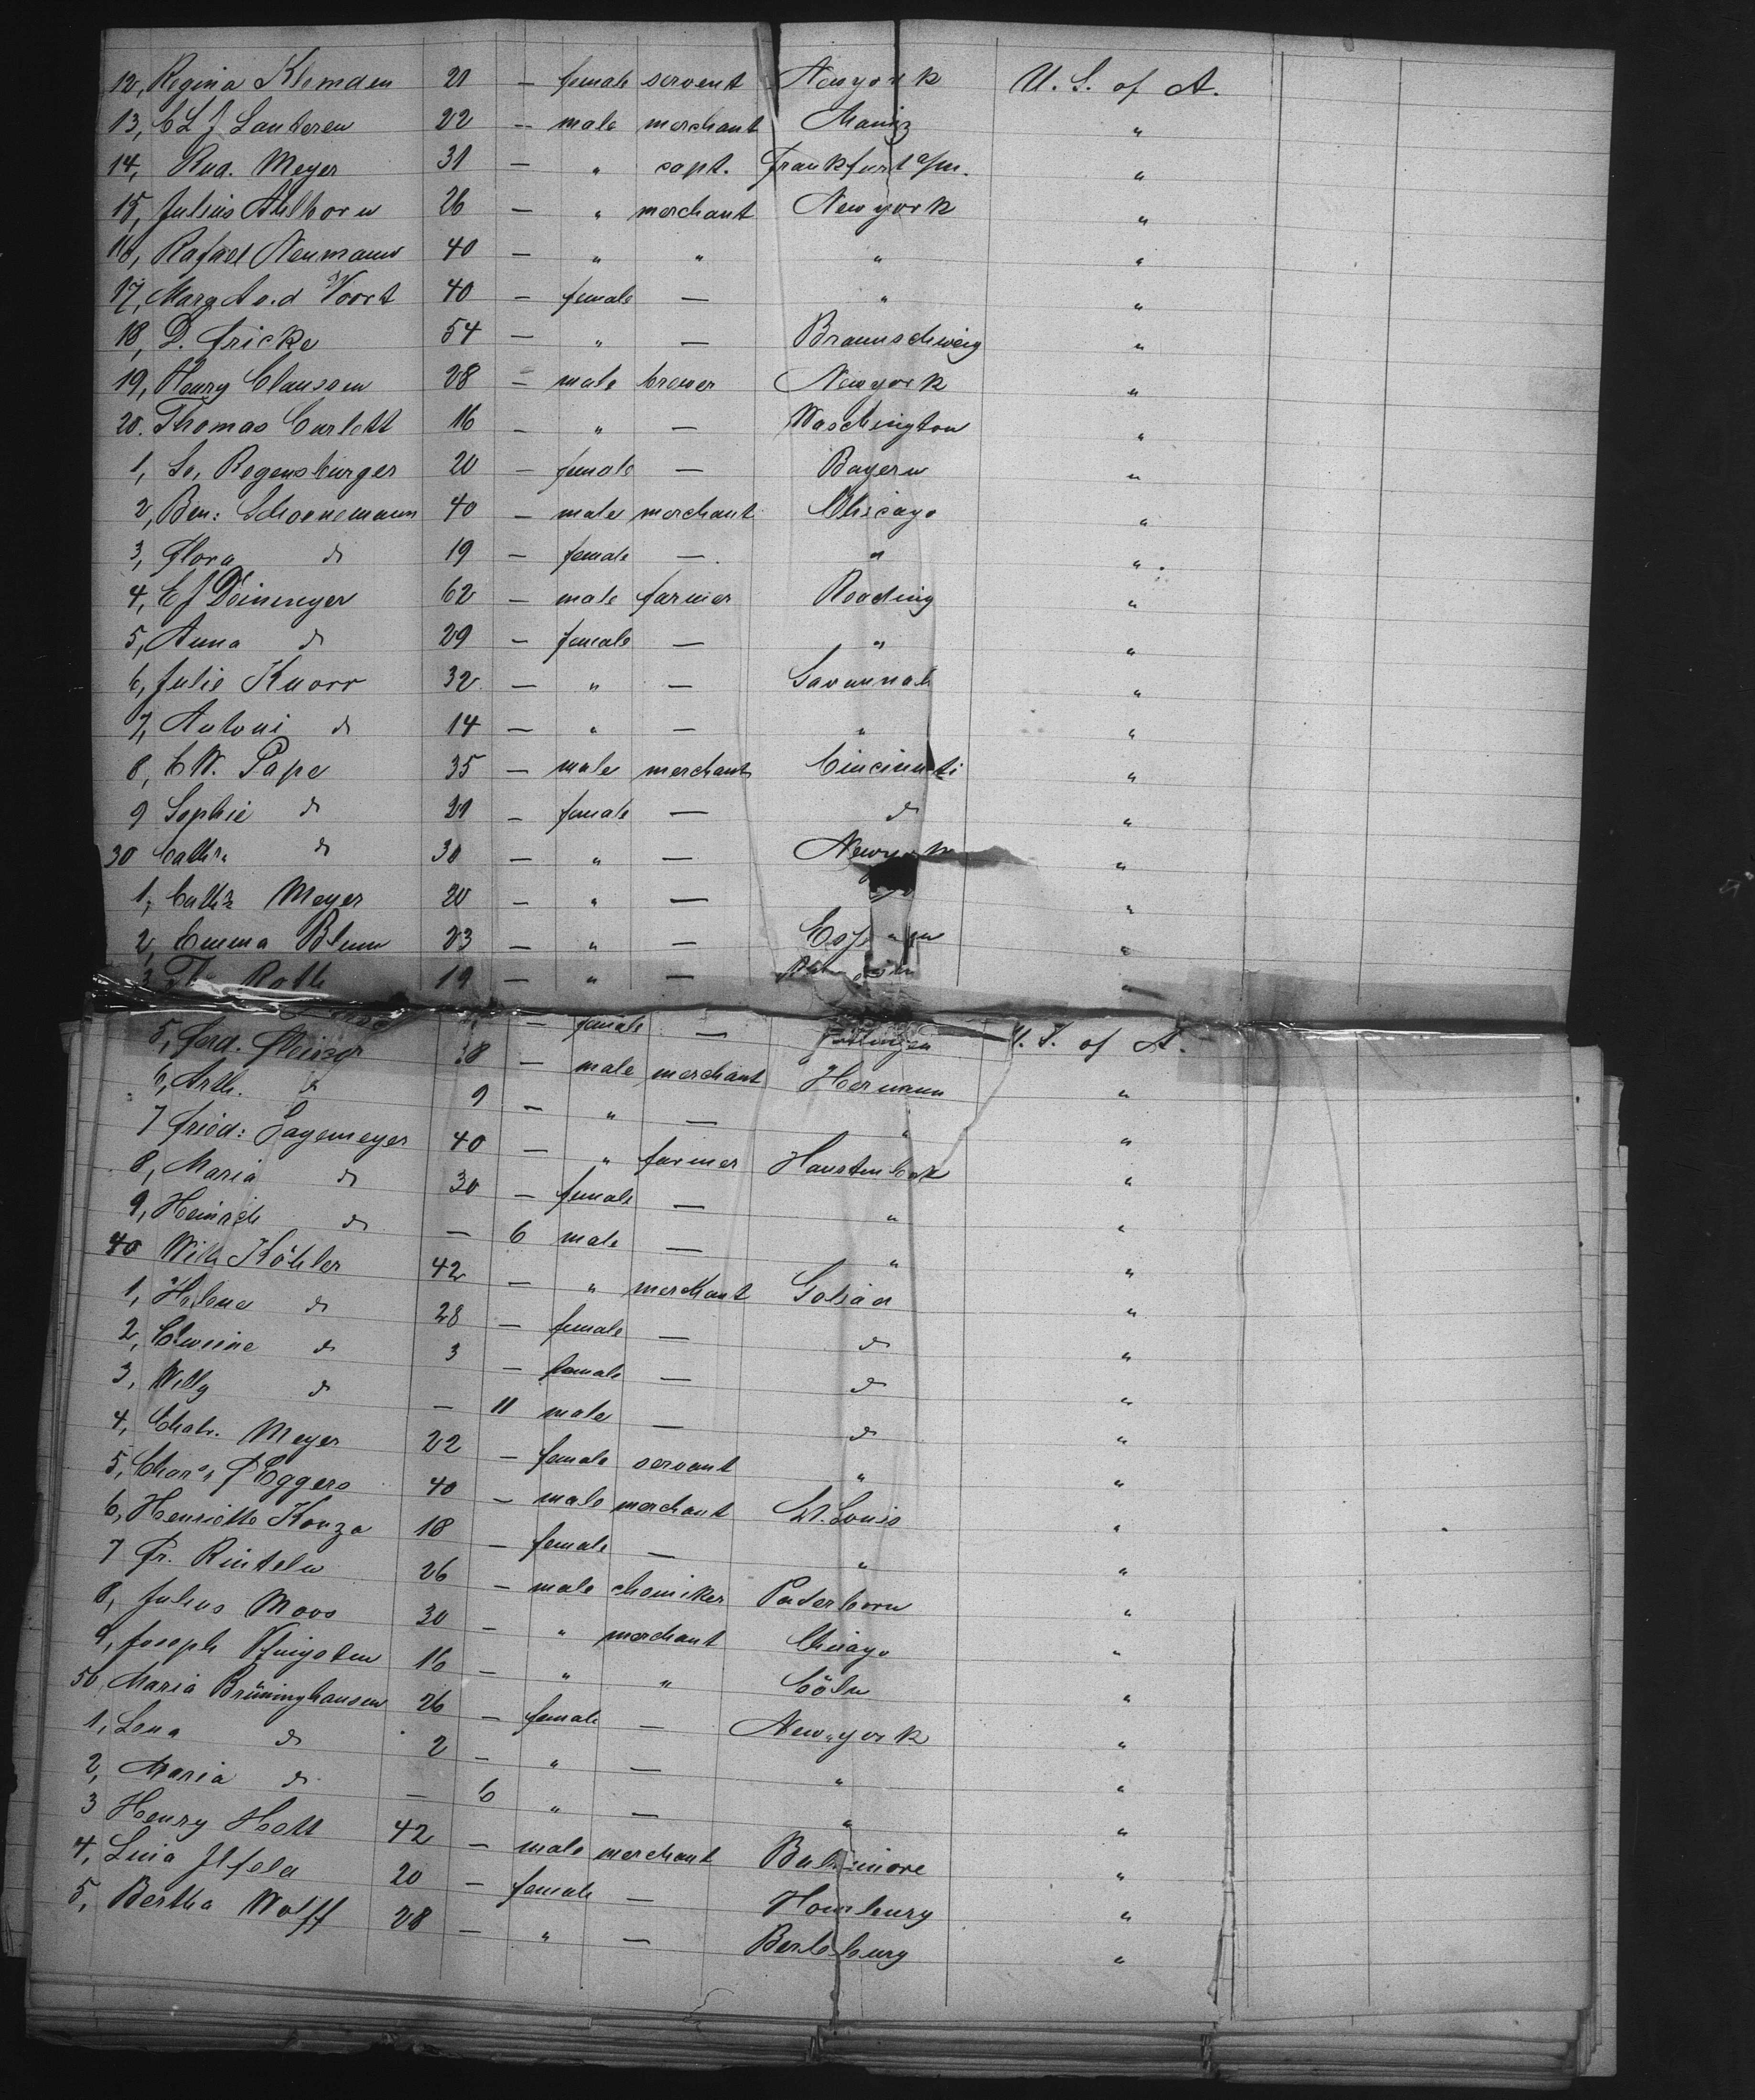 12, Regina Klemden 21 — female servent Newyork U. S. of A.
13, C L J Lauteren 22 — male merchant Mainz "
14, Rud. Meyer 31 — " capt. Frankfurt a/m. "
15, Julius Ahlborn 26 — " merchant New york "
16, Rafael Neumann 40 — " " " "
17, Margt v. d Voort 40 — female — " "
18, D. Fricke 54 — " — Braunschweig "
19, Henry Clausen 28 — male brewer Newyork "
20. Thomas Curlett 16 — " — Waschington "
1, So, Regensburger 20 — female — Bayern "
2, Ben: Schoenemann 40 — male merchant Chicago "
3, Flora do 19 — female — " "
4, E J Deininger 62 — male farmer Reading "
5, Anna do 29 — female — " "
6, Julie Knorr 32 — " — Savannah "
7, Antoni do 14 — " — " "
8, C W. Pape 35 — male merchant Cincinnati "
9 Sophie do 21 — female — do "
30 Cathr. do 30 — " — Newyork "
1, Meyer 20 — " — "
2, Emma Blum 23 — " — "
3 Th. Roth 19 — " — "
— female — U. S. of A.
5, Ferd. 38 — male merchant Hermann "
6, Arth. do 9 — " — " "
7 Fried: Sagemeyer 40 — " farmer Haustenbeck "
8, Maria do 30 — female — " "
9, Heinrich do — 6 male — " "
40 Wilh Köhler 42 — " merchant Goliad "
1, Helene do 28 — female — do "
2, do 3 — female — do "
3, Willy do — 11 male — do "
4, Meyer 22 — female servant " "
5, Chars F Eggers 40 — male merchant St. Louis "
6, Henriette Konza 18 — female — " "
7 Fr. Rinteln 26 — male chemiker Paderborn "
8, Julius Moos 30 — " merchant Chicago "
9, Joseph Pfingsten 16 — " " Cöln "
50 Maria Brüninghausen 26 — female — New york "
1, Lena do 2 — " — " "
2, Maria do — 6 " — " "
3 Henry Hott 42 — male merchant Baltimore "
4, Lina Ilfeld 20 — female — Homburg "
5, Bertha Wolff 28 — " — Berleburg "